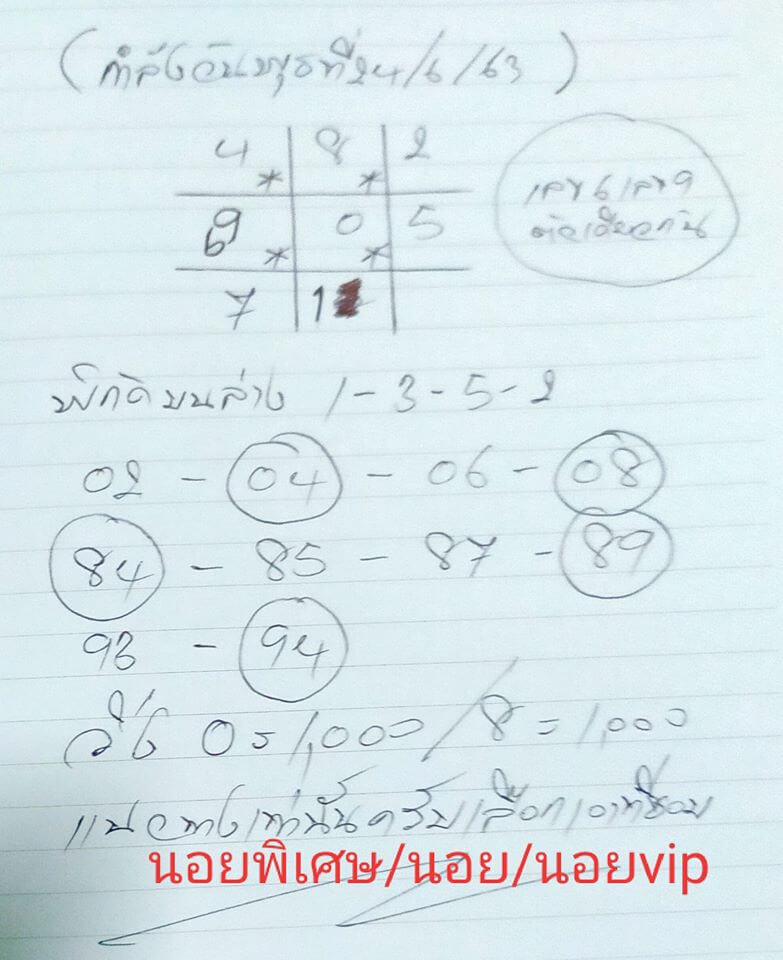 (กำลังวันพุธที่24/6/63)
4* 8* 2
69* 0* 5
7 1
เลข 6 เลข 9
ตัวเดียวกัน
พิกัดบนล่าง 1-3-5-2
02 - 04 - 06 - 08
84 - 85 - 87 - 89
93 - 94
วิ่ง 0=1,000/8=1,000
แนวทางเท่านั้นครับเลือกเอาที่ชอบ
นอยพิเศษ/นอย/นอยvip